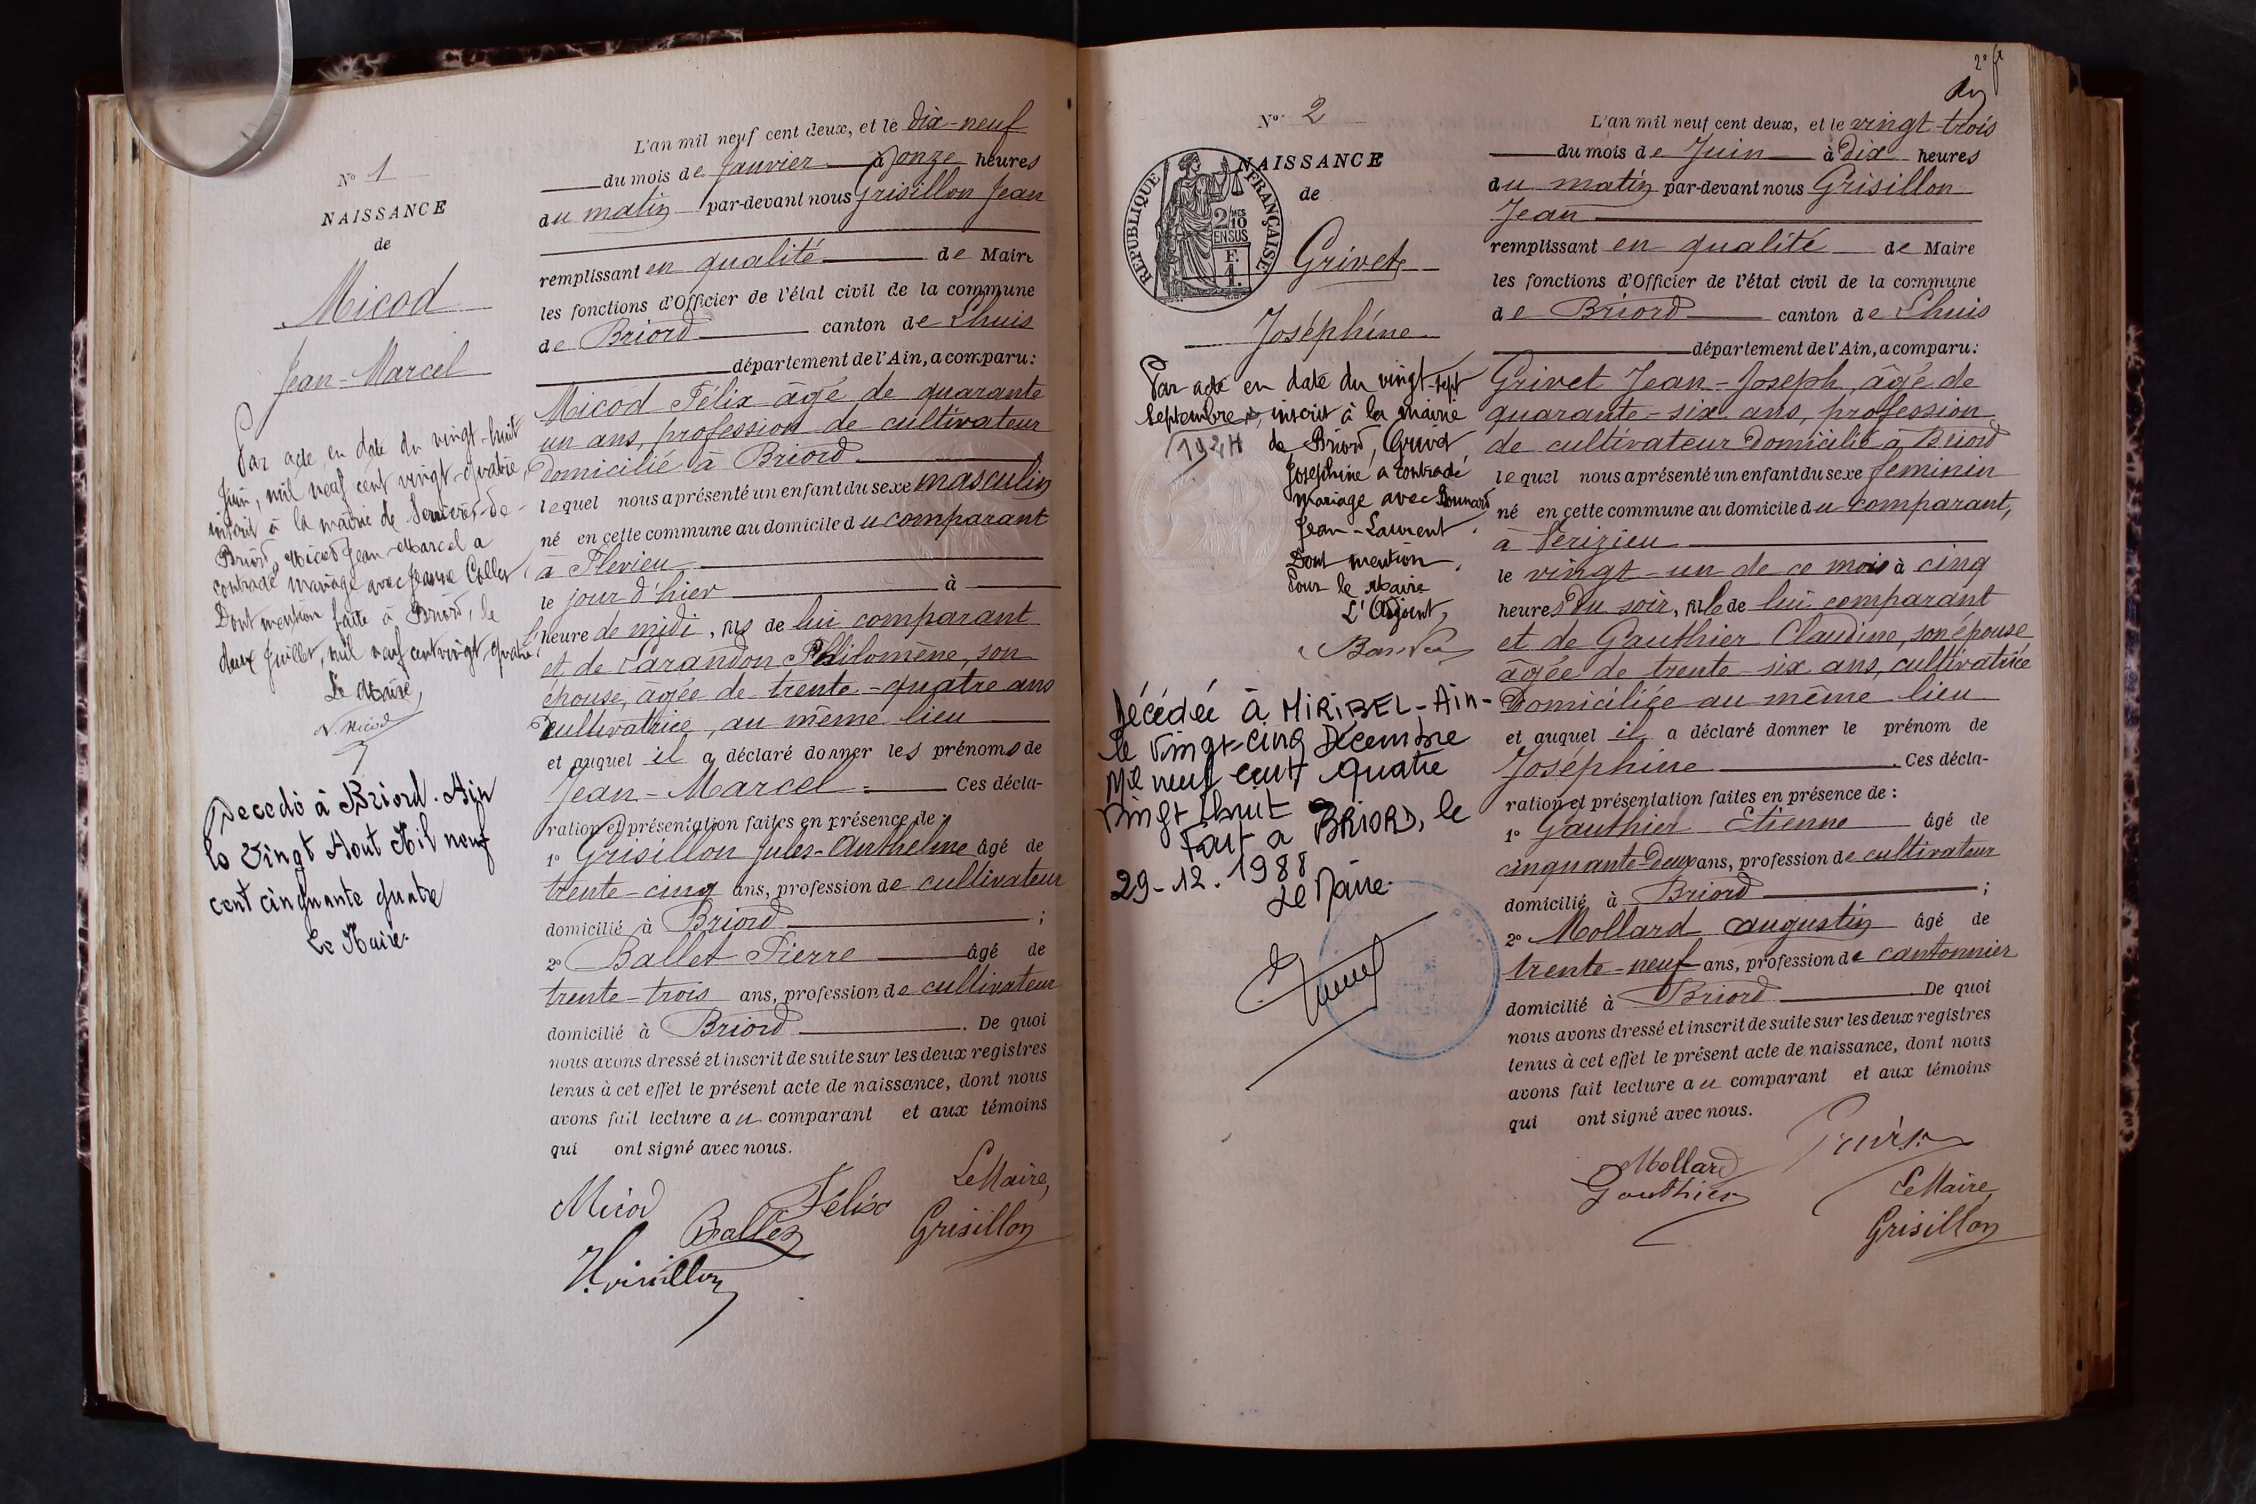 N° 1
NAISSANCE
de
Micod
Jean-Marcel
Par acte en date du vingt-huit
Juin, mil neuf cent vingt-quatre
inscrit à la mairie de Serrières-de-
Briord, Micod Jean-Marcel a
contracté mariage avec Jeanne
Dont mention faite à Briord, le
deux Juillet, mil neuf cent vingt-quatre
Le Maire,
Micod
Decedé à Briord. Ain
le Vingt Aout Mil neuf
cent cinquante quatre
Le Maire.
L'an mil neuf cent deux, et le dix-neuf
du mois de Janvier à onze heures
du matin par-devant nous Grisillon Jean
remplissant en qualité de Maire
les fonctions d'Officier de l'état civil de la commune
de Briord canton de Lhuis
département de l'Ain, a comparu:
Micod Félix âgé de quarante
un ans, profession de cultivateur
domicilié à Briord
lequel nous a présenté un enfant du sexe masculin
né en cette commune au domicile du comparant
à Flévieu
le jour d'hier à
heure de midi, fils de lui comparant
et de Carandon Philomène, son
épouse, âgée de trente-quatre ans
cultivatrice, au même lieu
et auquel il a déclaré donner les prénoms de
Jean-Marcel Ces décla-
ration et présentation faites en présence de:
1° Grisillon Jules-Anthelme âgé de
trente-cinq ans, profession de cultivateur
domicilié à Briord ;
2° Ballet Pierre âgé de
trente-trois ans, profession de cultivateur
domicilié à Briord . De quoi
nous avons dressé et inscrit de suite sur les deux registres
tenus à cet effet le présent acte de naissance, dont nous
avons fait lecture au comparant et aux témoins
qui ont signé avec nous.
Micod Félix Le Maire,
Ballet Grisillon
Grisillon
2e ft
N° 2
NAISSANCE
de
REPUBLIQUE FRANÇAISE
2/10
EN SUS
F.
1.
Grivet
Joséphine
Par acte en date du vingt-sept
Septembre, inscrit à la mairie
1924
de Briord, Grivet
Joséphine a contracté
mariage avec Bonnard
Jean-Laurent
Dont mention
Pour le Maire
L'Adjoint,
Décédée à MIRIBEL-Ain-
le Vingt-cinq Décembre
Mil neuf cent quatre
Vingt huit
Fait à BRIORD, le
29-12.1988
Le Maire.
L'an mil neuf cent deux, et le vingt-trois
du mois de Juin à dix heures
du matin par-devant nous Grisillon
Jean
remplissant en qualité de Maire
les fonctions d'Officier de l'état civil de la commune
de Briord canton de Lhuis
département de l'Ain, a comparu:
Grivet Jean-Joseph, âgé de
quarante-six ans, profession
de cultivateur domicilié à Briord
lequel nous a présenté un enfant du sexe féminin
né en cette commune au domicile du comparant,
à Vérizieu
le vingt-un de ce mois à cinq
heures du soir, fille de lui comparant
et de Gauthier Claudine, son épouse
âgée de trente-six ans, cultivatrice
Domiciliée au même lieu
et auquel il a déclaré donner le prénom de
Joséphine . Ces décla-
ration et présentation faites en présence de:
1° Gauthier Etienne âgé de
cinquante-deux ans, profession de cultivateur
domicilié à Briord ;
2° Mollard Augustin âgé de
trente-neuf ans, profession de cantonnier
domicilié à Briord De quoi
nous avons dressé et inscrit de suite sur les deux registres
tenus à cet effet le présent acte de naissance, dont nous
avons fait lecture au comparant et aux témoins
qui ont signé avec nous.
Mollard
Gauthier Le Maire,
Grisillon